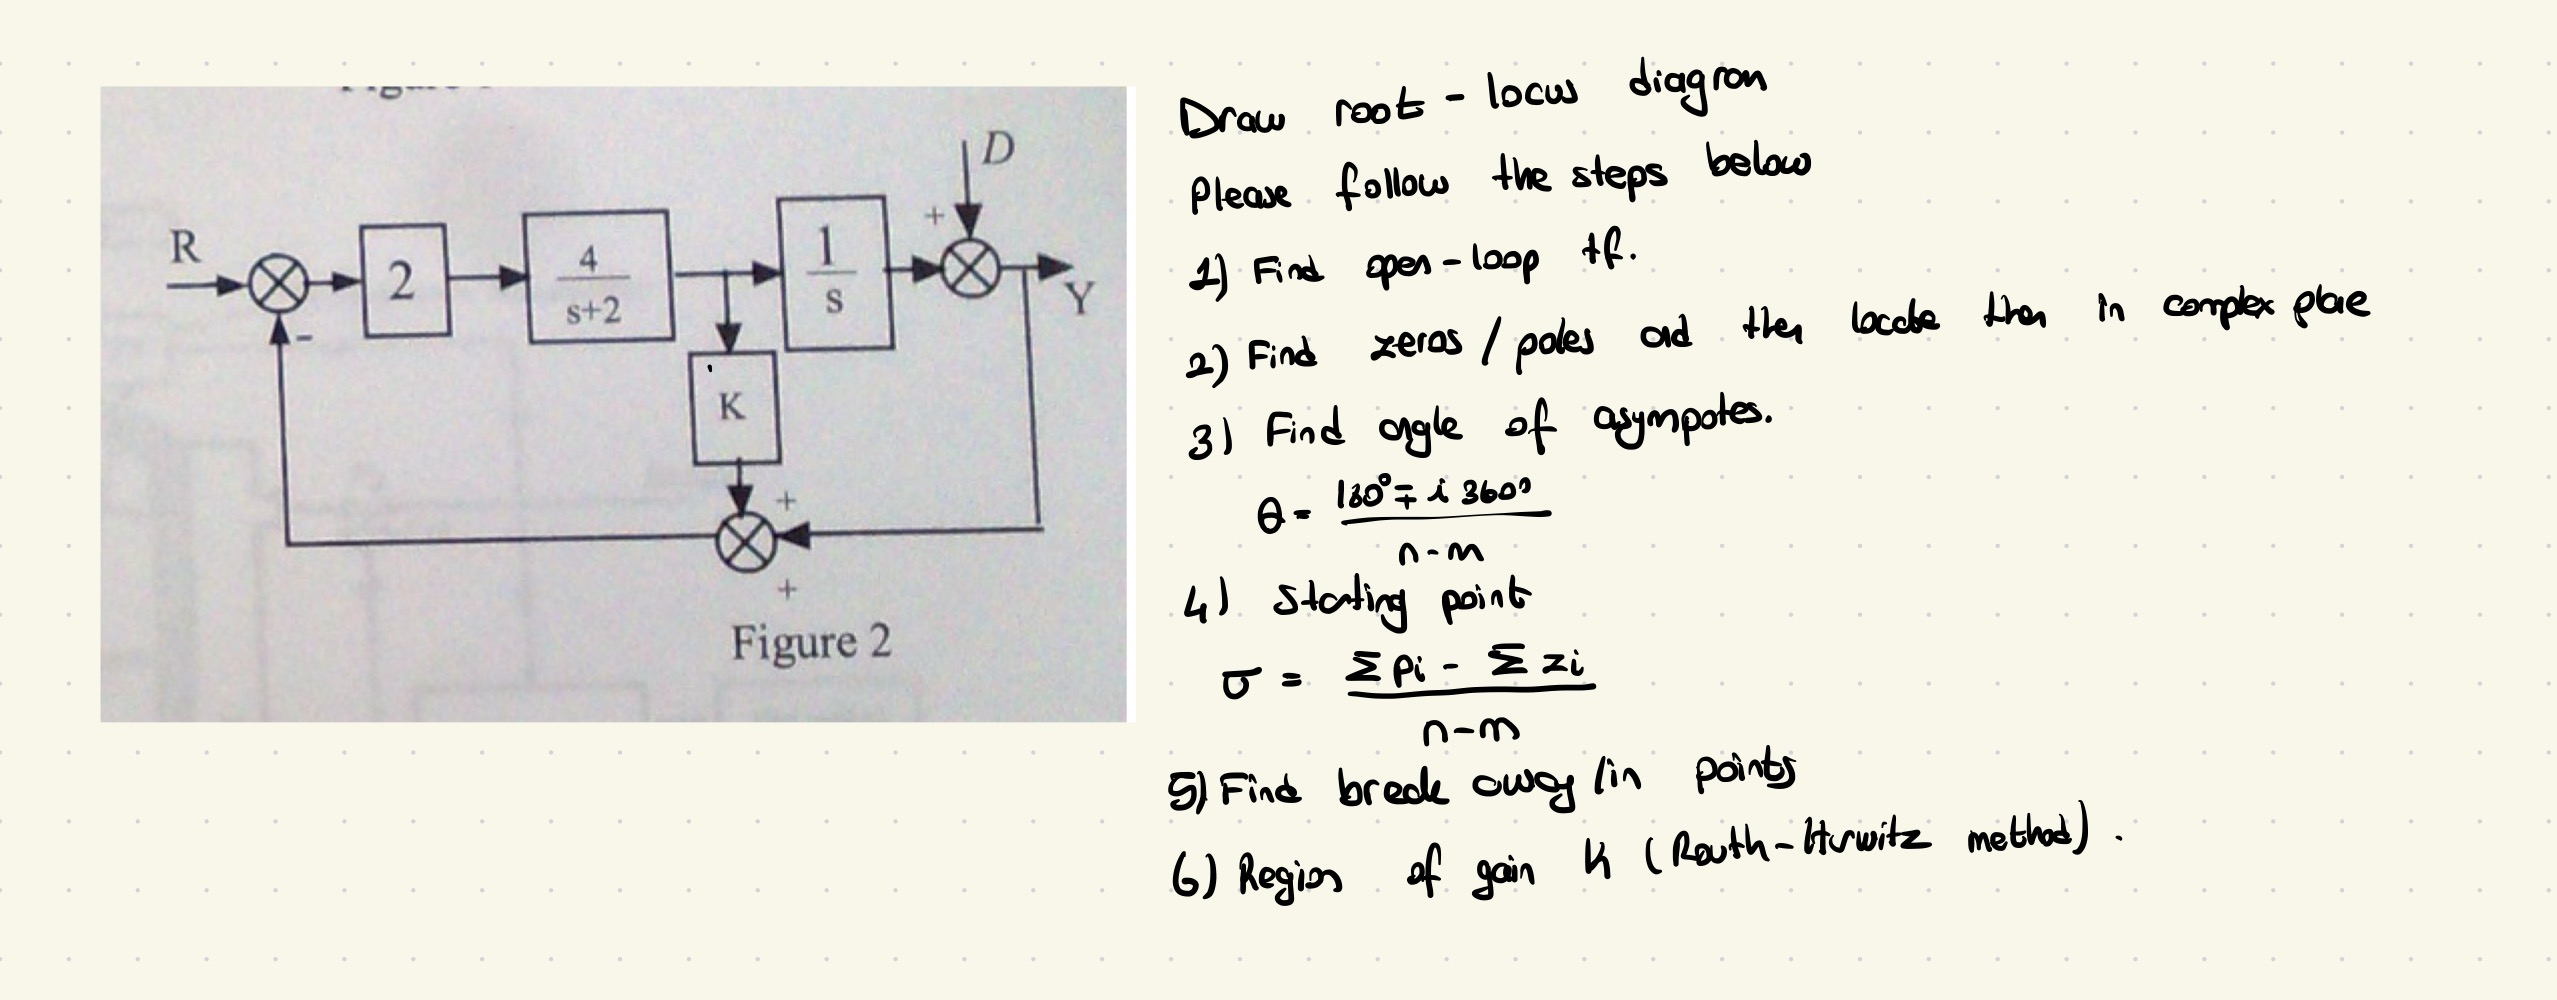 D
R
2
4
s+2
1
s
+
Y
-
K
+
+
Figure 2
Draw root - locus diagron
Please follow the steps below
1) Find open-loop tf.
2) Find zeros / poles and then locate then in complex plae
3) Find agle of asympotes.
θ = 180° ∓ i 360°
n-m
4) Starting point
σ = Σ pi - Σ zi
n-m
5) Find break away /in points
6) Region of gain K (Routh-Hurwitz method).